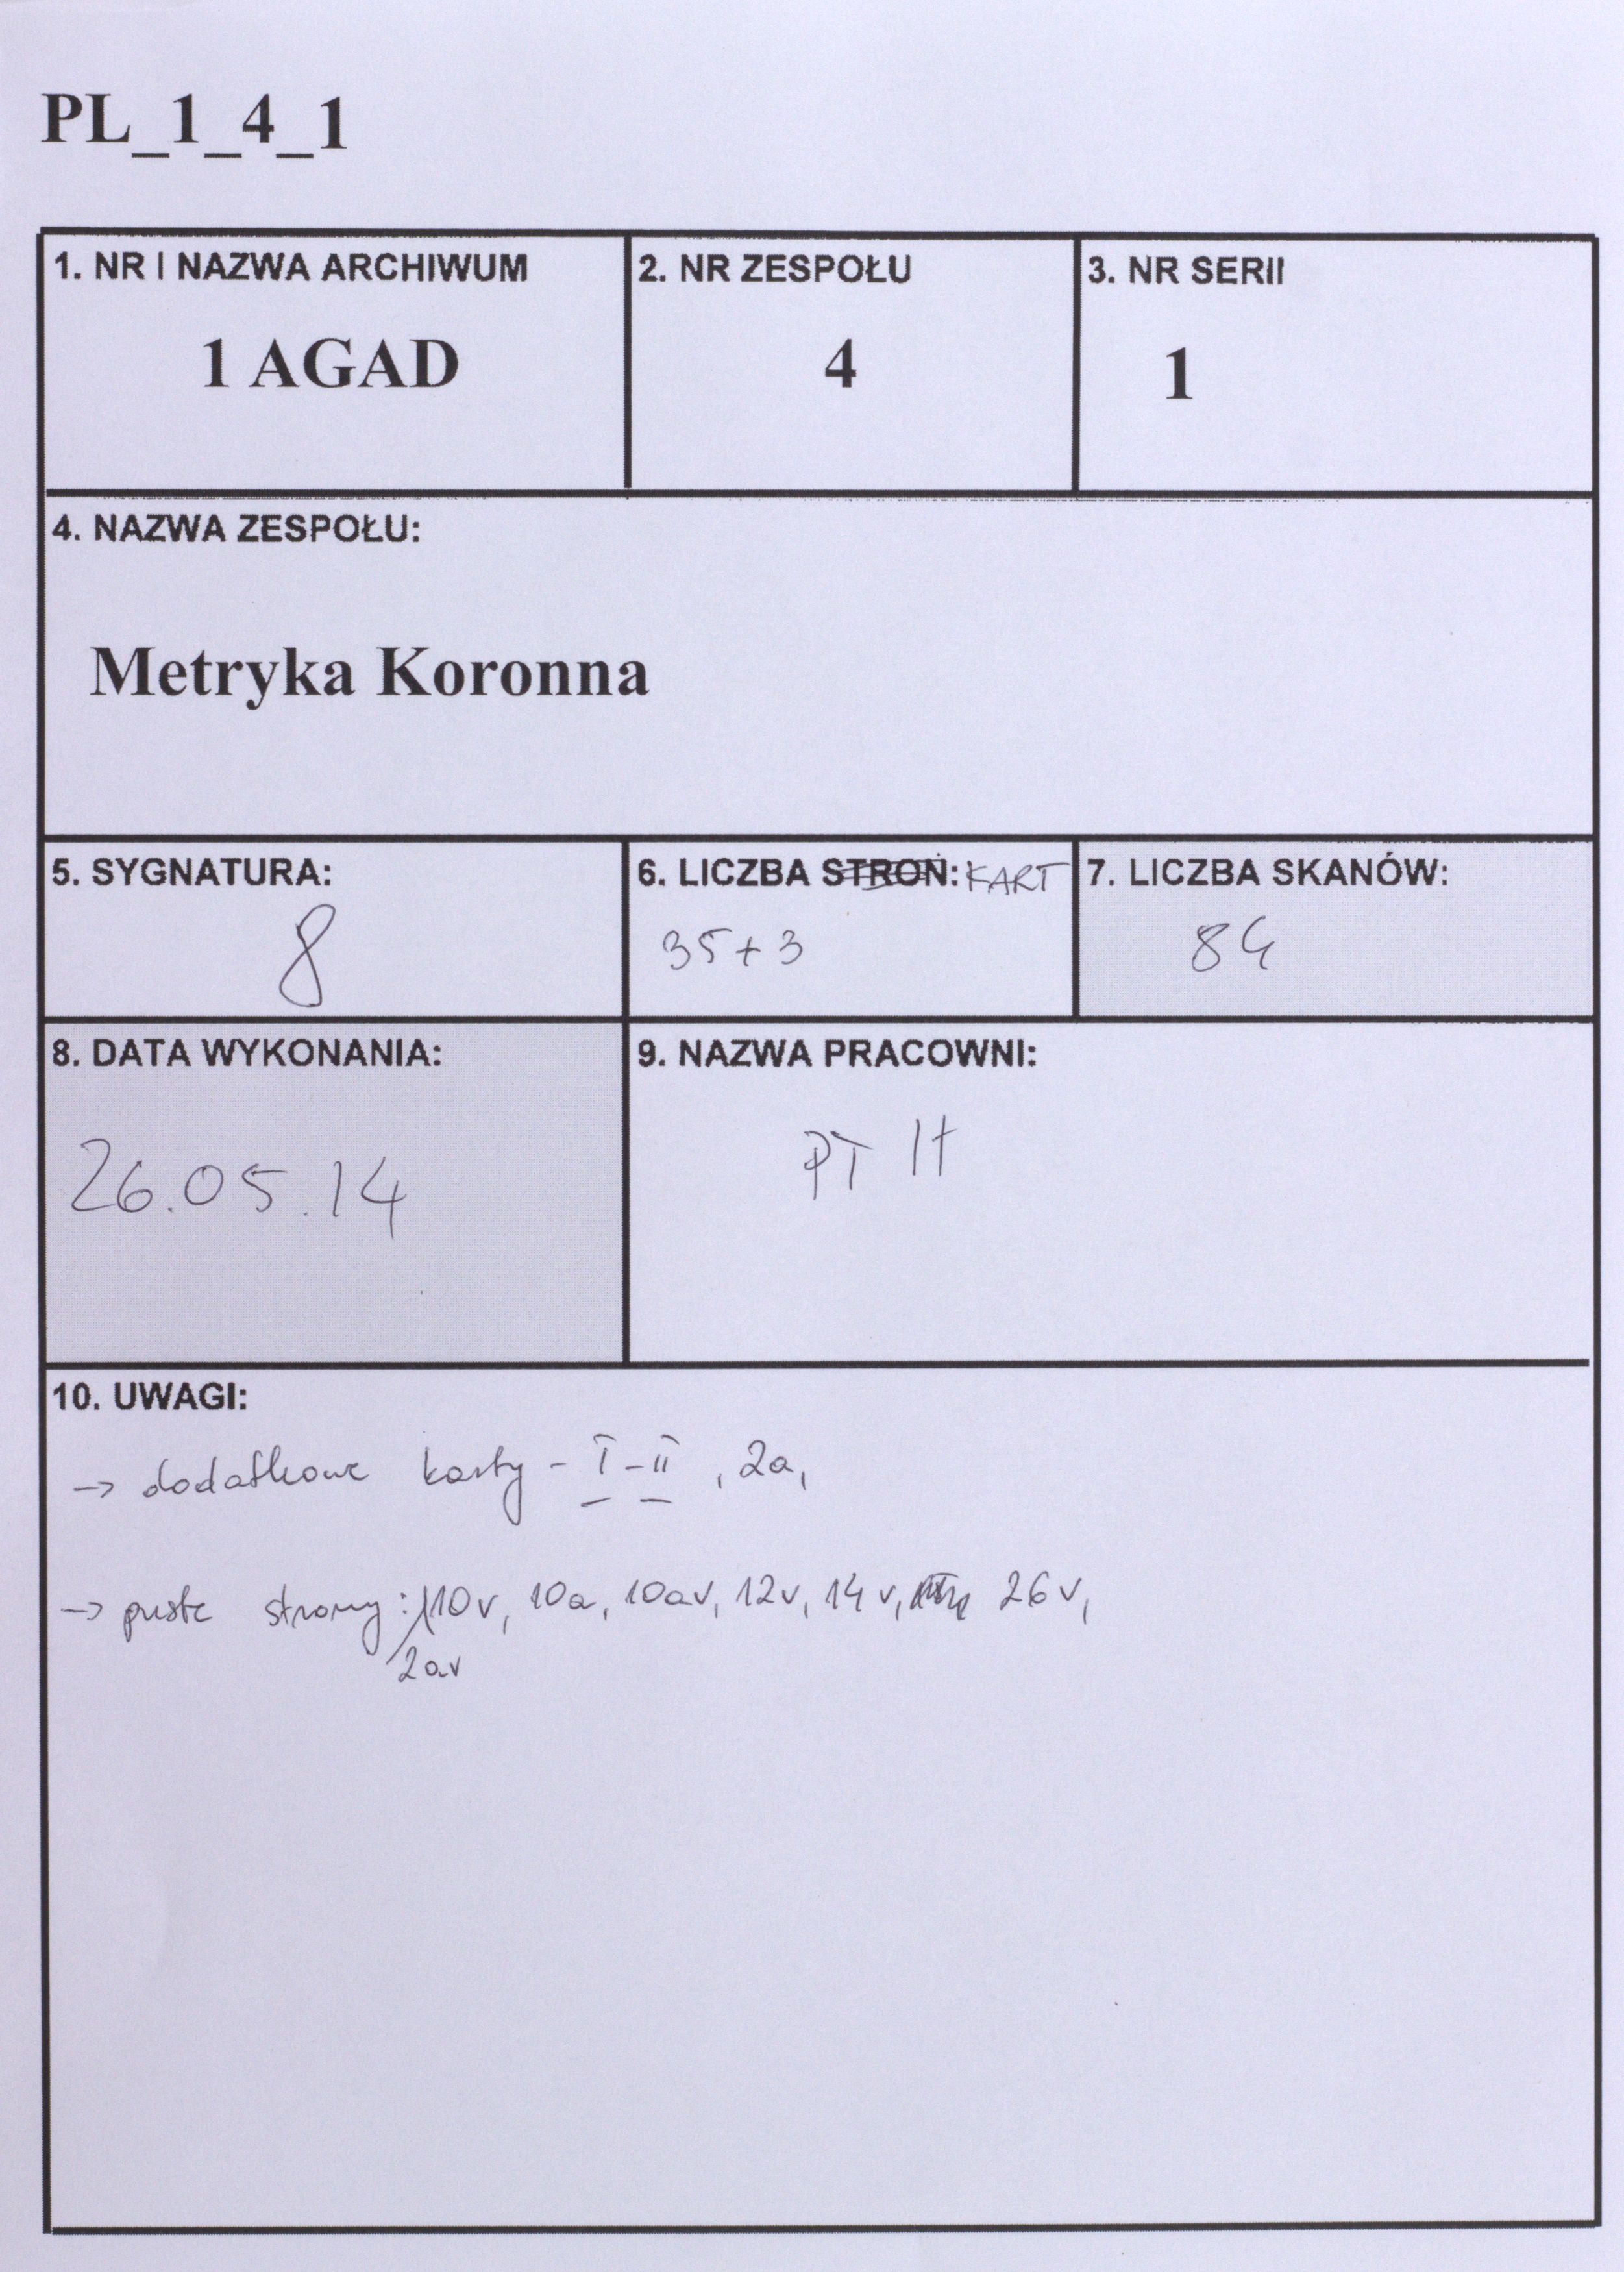 PL_1_4_1
1. NR I NAZWA ARCHIWUM
1 AGAD
2. NR ZESPOŁU
4
3. NR SERII
1
4. NAZWA ZESPOŁU:
Metryka Koronna
5. SYGNATURA:
8
6. LICZBA STRON: KART
35+3
7. LICZBA SKANÓW:
84
8. DATA WYKONANIA:
26.05.14
9. NAZWA PRACOWNI:
PT
10. UWAGI:
→ dodatkowe karty - I - II , 2a,
→ puste strony: 10v, 10a, 10av, 12v, 14v, 26v,
2av